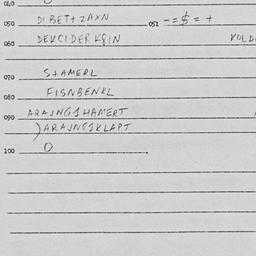 040
050 DIBET+ZAXN 051 -=$=+
060 DEVCIDERK&IN
070 S+AMERL
080 FISNBENKL
090 ARAJNG1HAMERT
)ARAJNG1KLAPT
100 0